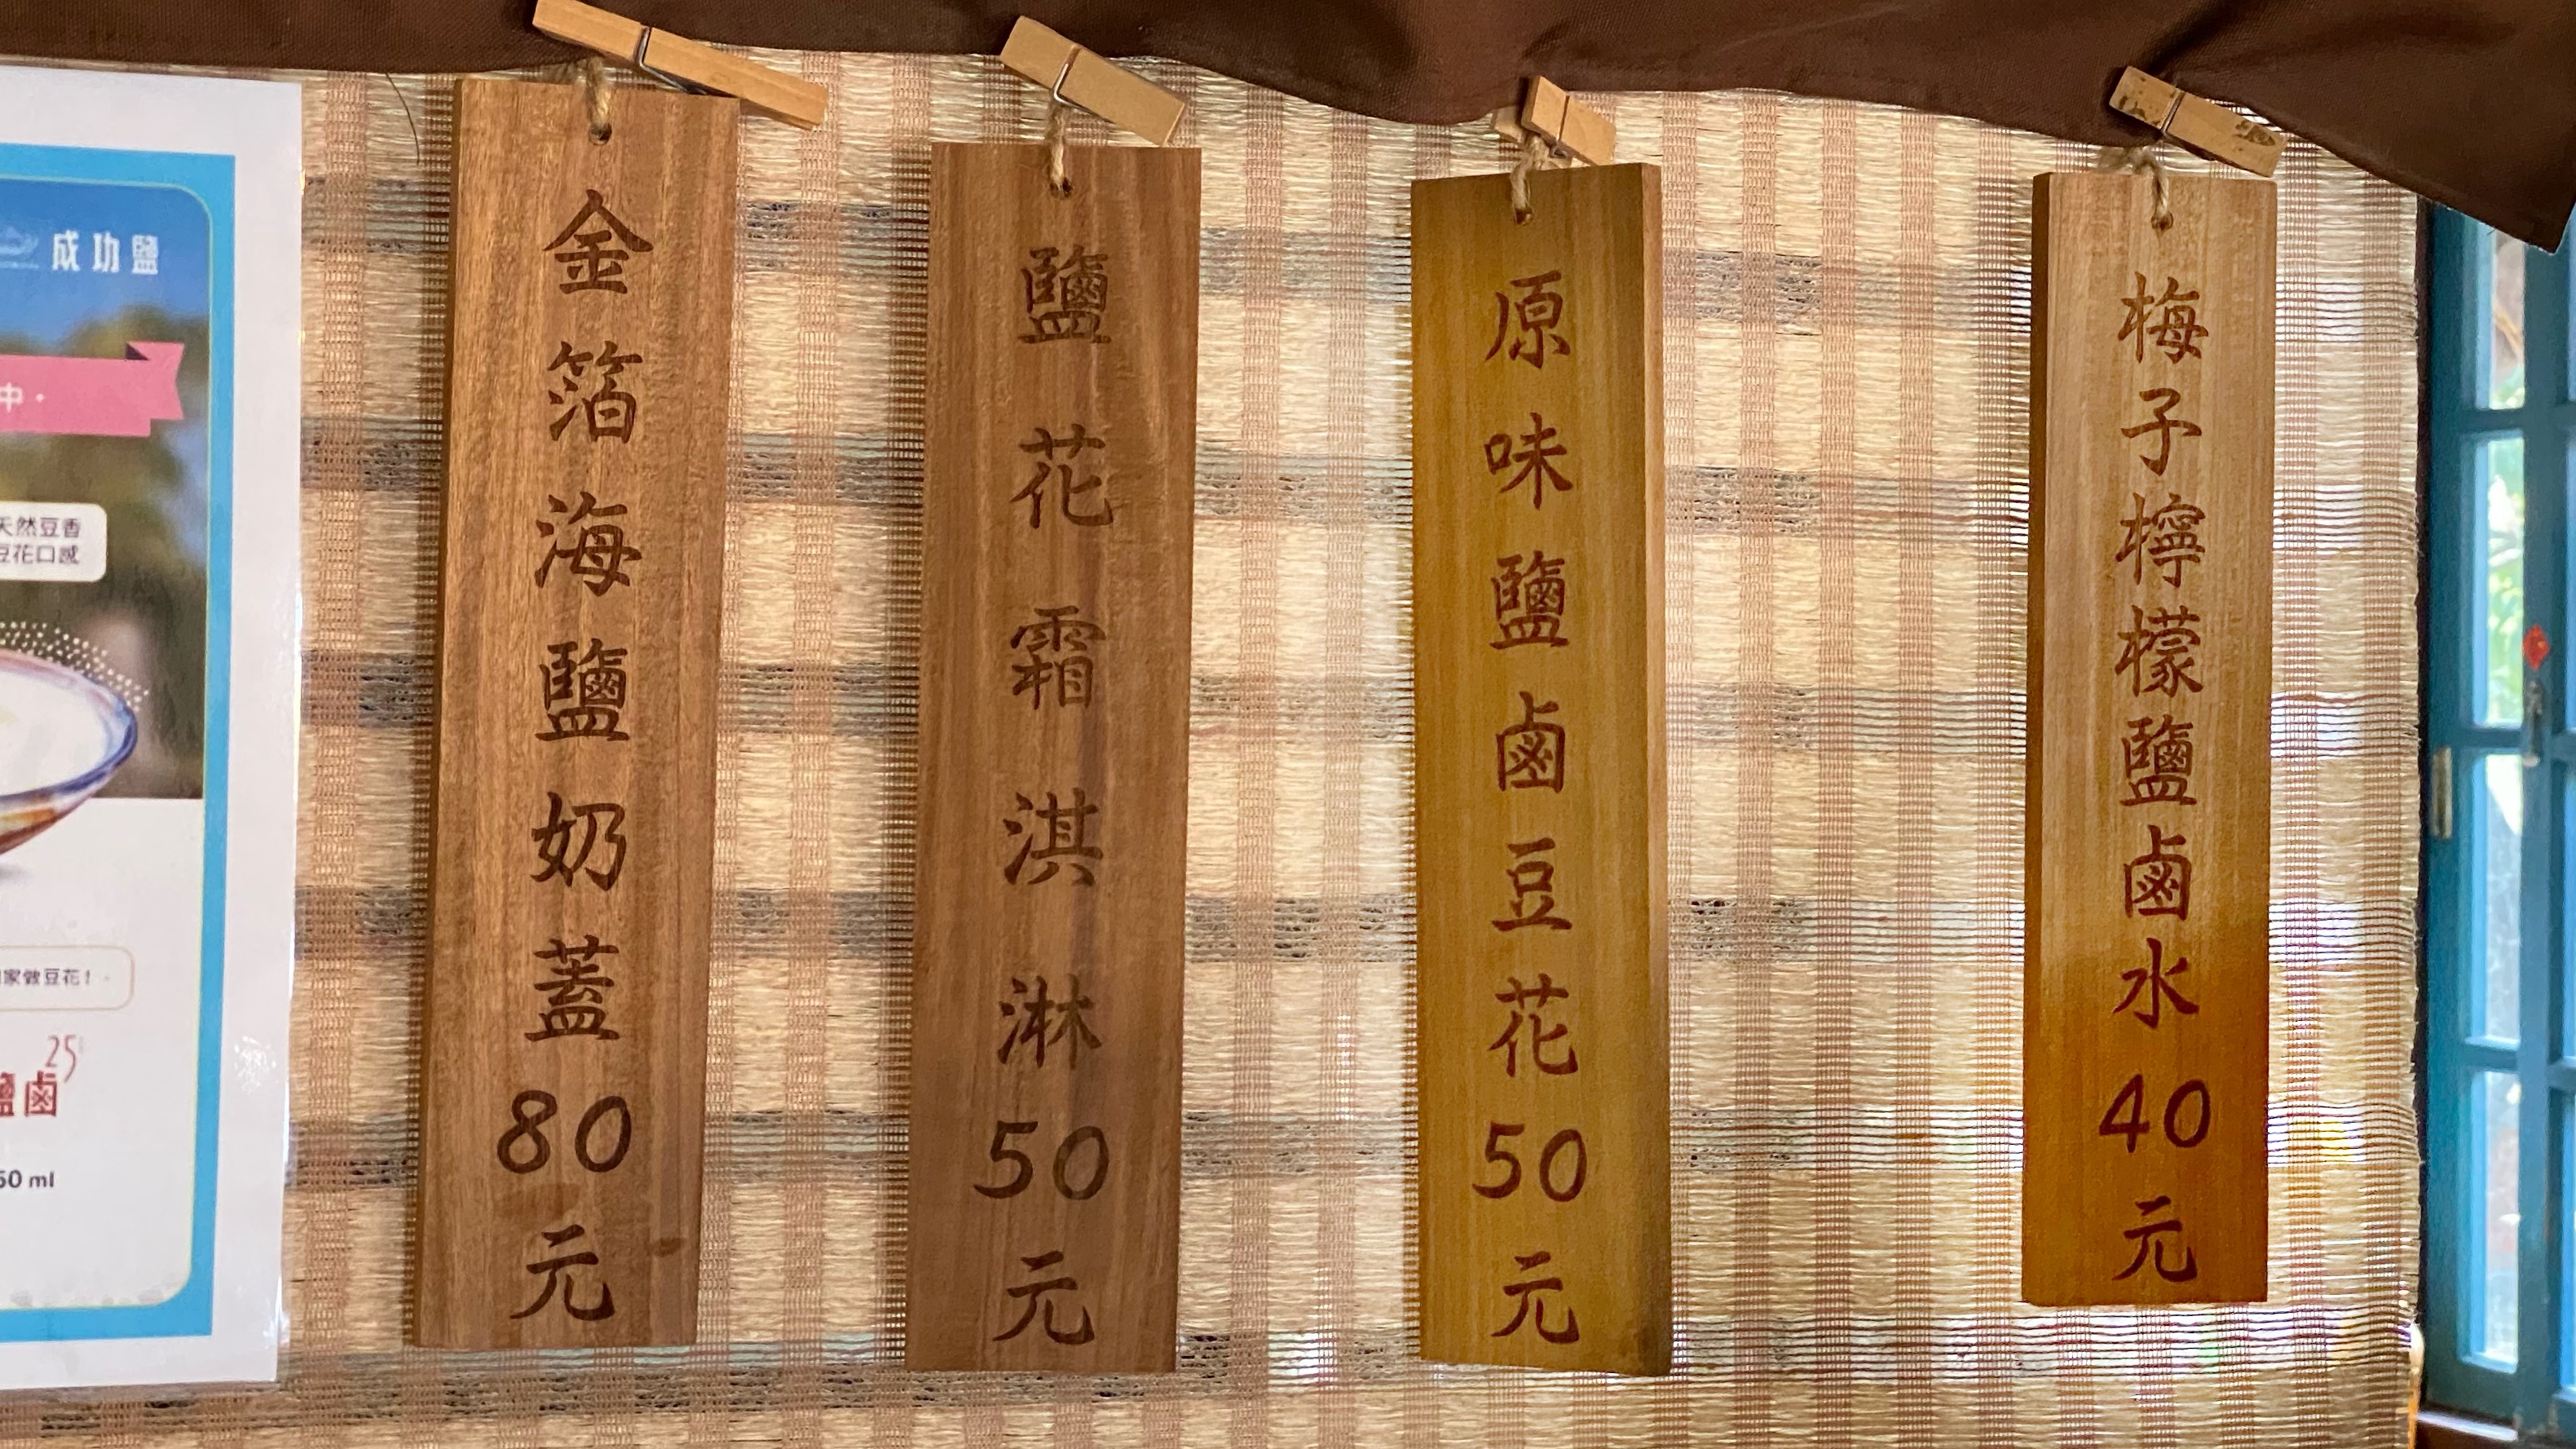 成功鹽
中。
天然豆香
豆花口感
家做豆花！
25
鹽鹵
50 ml
金箔海鹽奶蓋80元
鹽花霜淇淋50元
原味鹽鹵豆花50元
梅子檸檬鹽鹵水40元